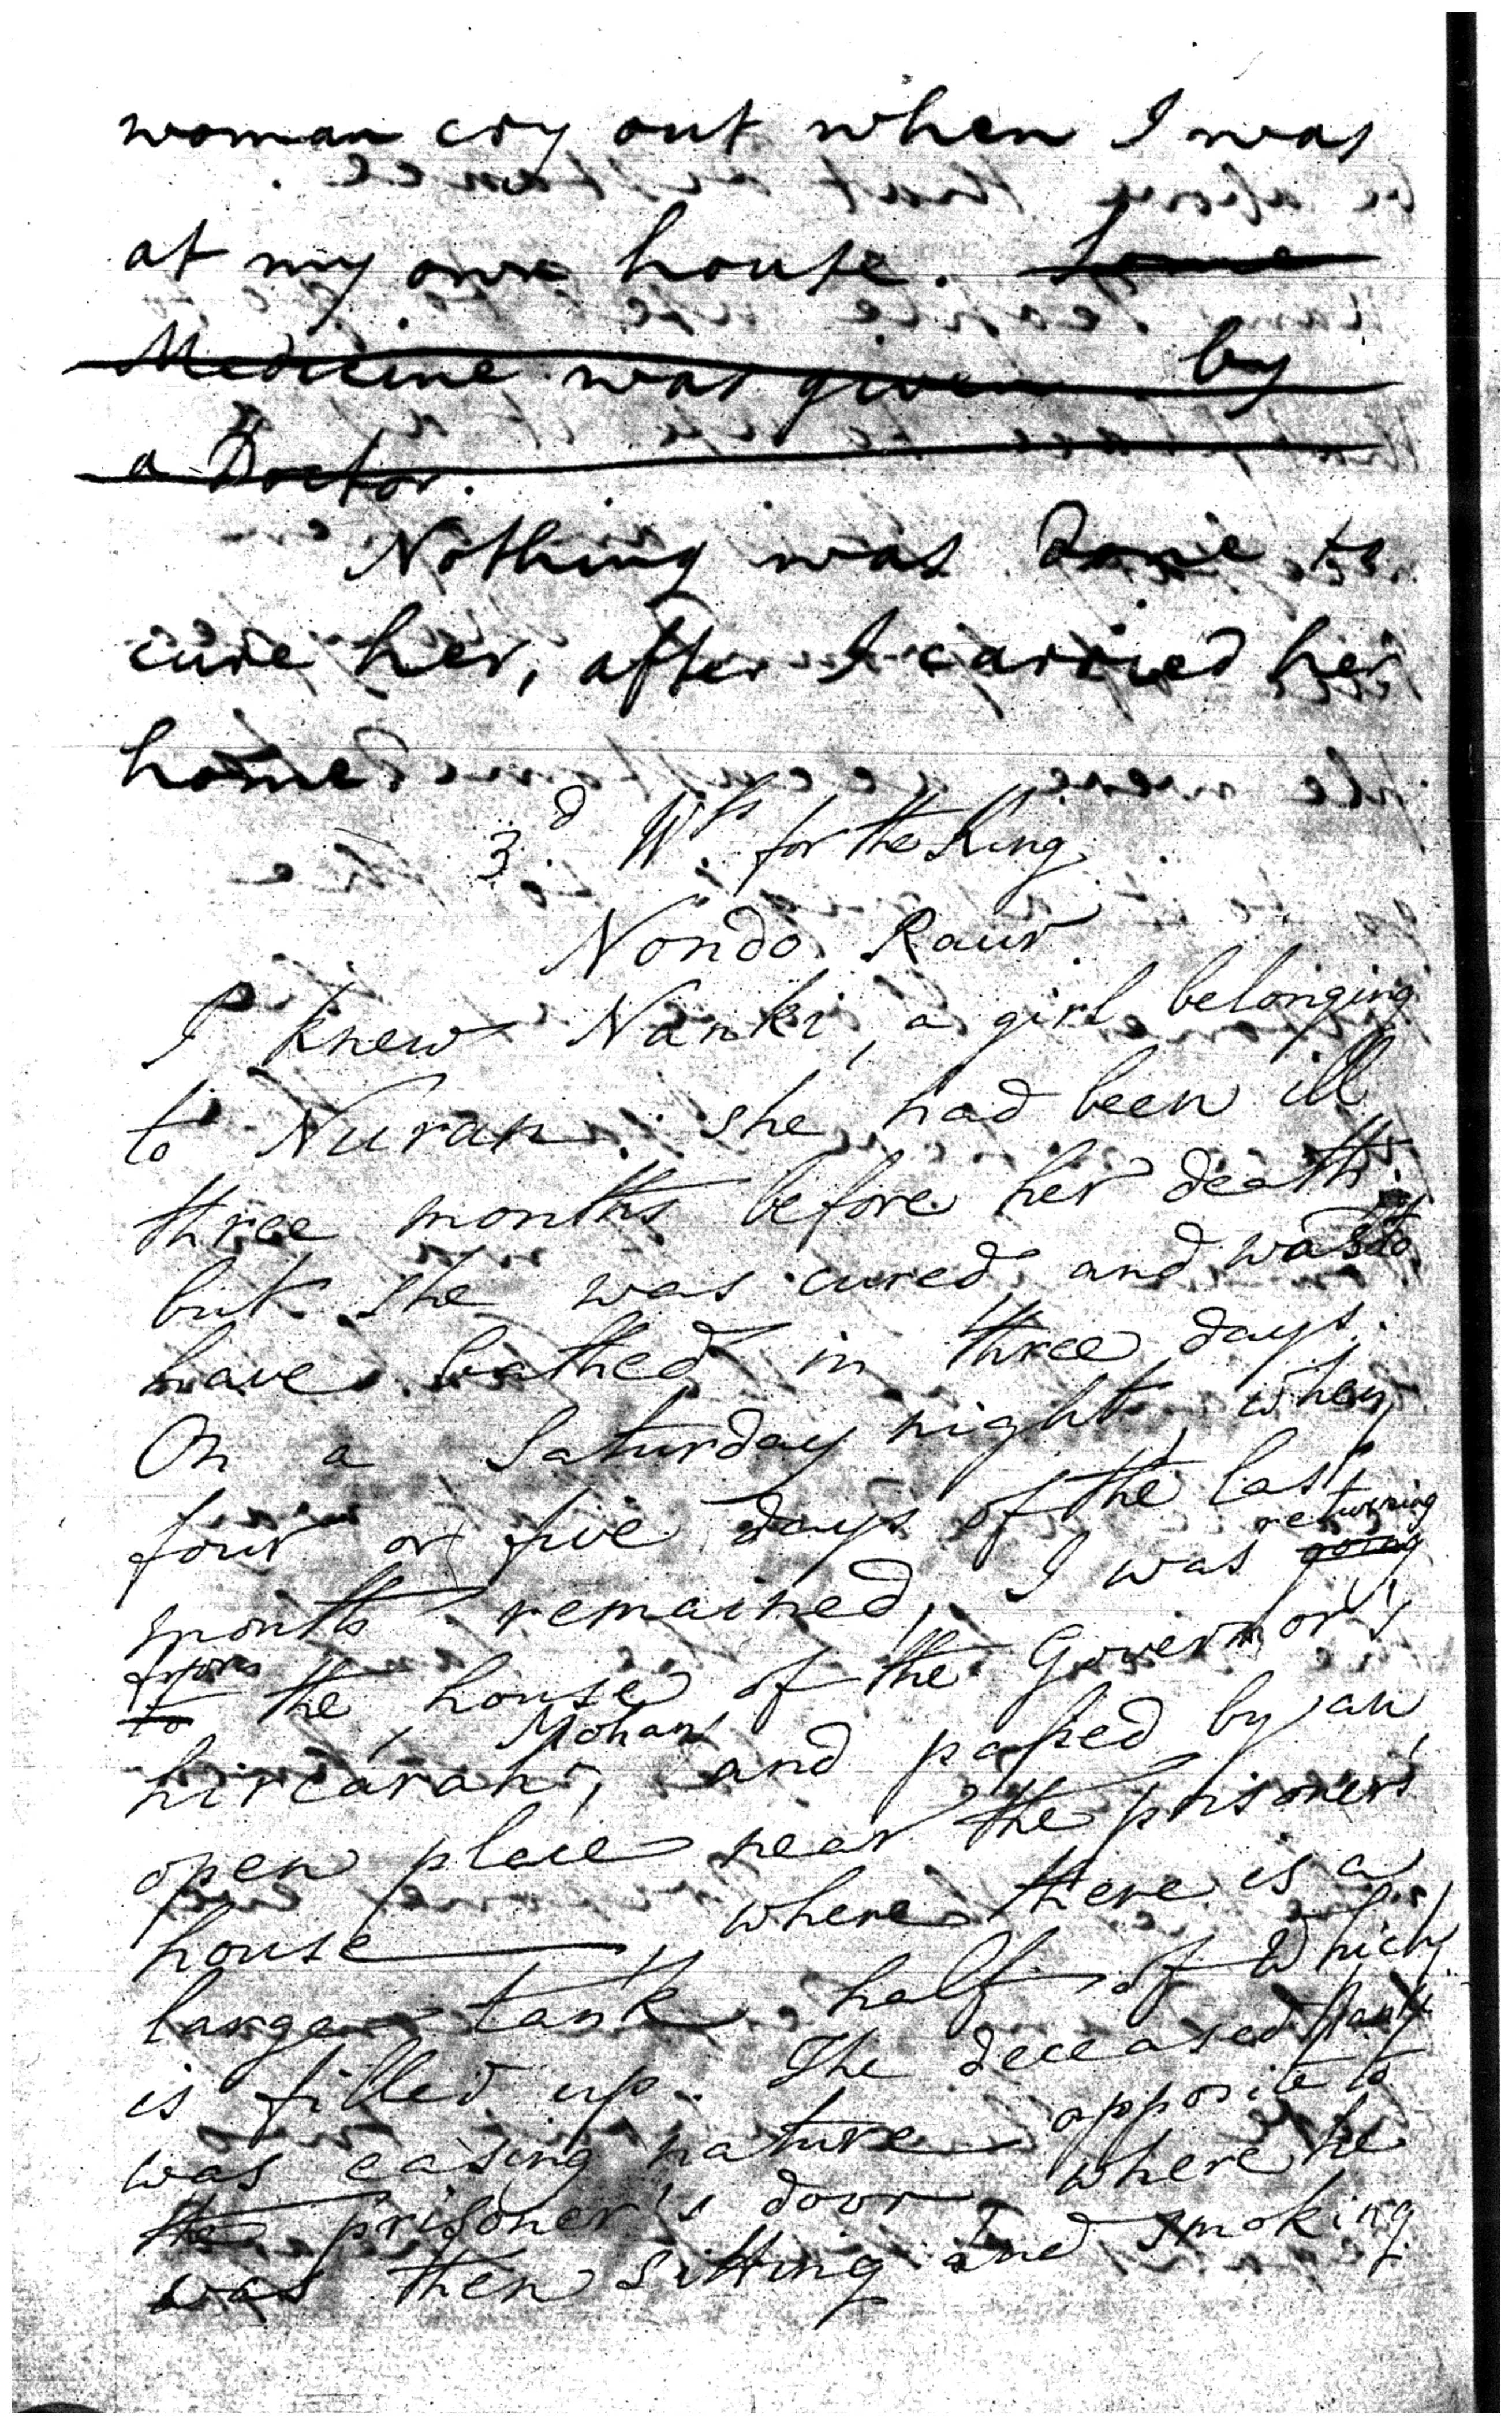 woman cry out when I was
at my own house. Some
Medicine was given by
a Doctor.
Nothing was done to
cure her, after I carried her
home.
3.d W.ts for the King.
Nondo Raur.
I knew Nanki, a girl belonging
to Nuran. she had been ill
three months before her death
but she was cured, and was to
have bathed in three days.
On a Saturday night, when
four or five days of the last
month remained, I was going returning
to from the house of the Governor's
hircarah, Mohan, and passed by an
open place near the prisoner's
house where there is a
large tank half of which
is filled up. The deceased
was easing nature opposite to
the prisoner's door, where he
was then sitting and smoking